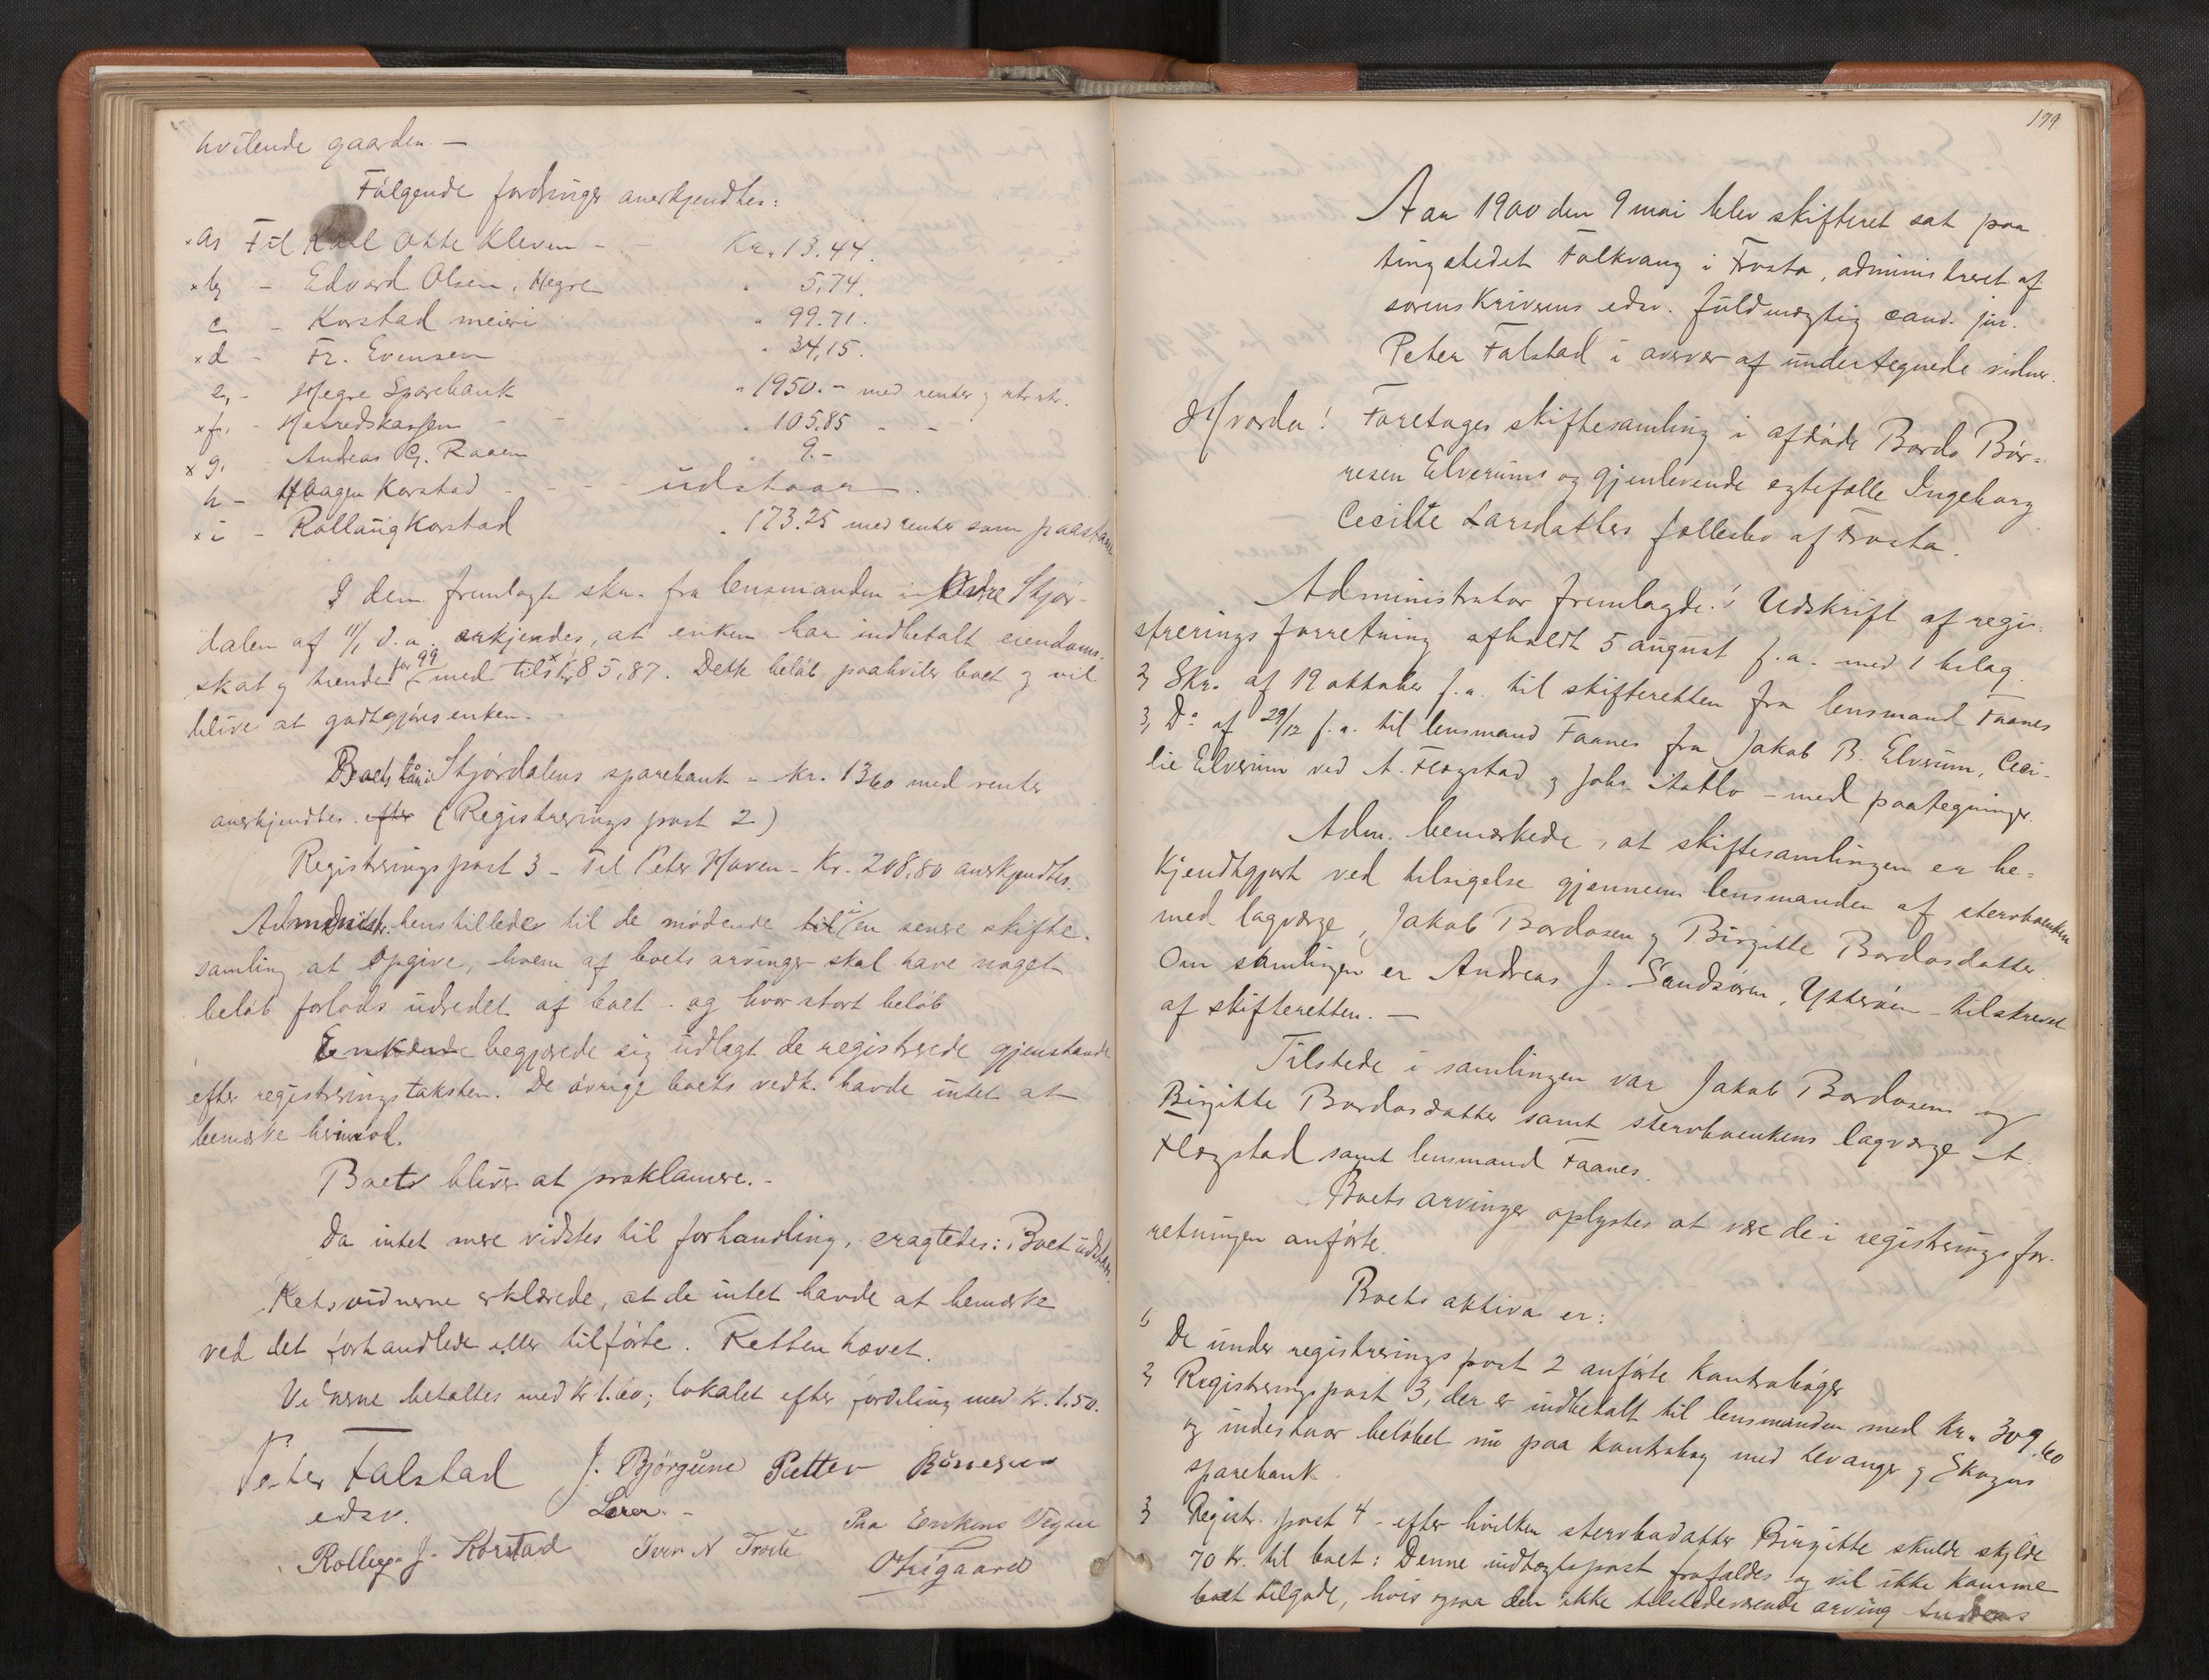 hvilende gaarden. —
Følgende fordringer anerkjendtes:
×a, Til Karl Otto Kleven - Kr. 13.44.
×b, - Edvard Olsen, Hegre " 5,74.
c - Korstad meieri " 99.71.
×d - Fr. Evensen " 34,15.
e, - Hegre Sparebank " 1950.- med renter og
×f, - Herredskassen - - " 105,85 - -
×g, Andreas G. Raaen " 9.-
h - Haagen Korstad - - - udstaar.
×i - Rollaug Korstad " 173.25 med renter som paastaaet
I den fremlagte skr. fra lensmanden i Øvre Stjør-
dalen af 11/1 d.a. erkjendes, at enken har indbetalt eiendoms-
skat og tiende for 99 med tils. kr 85,87. Dette beløb paahviler boet og vil
blive at godtgjøres enken.
Boets lån i Stjørdalens sparebank - kr. 1360 med renter
anerkjendtes. efter (Registrerings post 2)
Registreringspost 3 - Til Peter Haven - Kr. 208,80 anerkjendtes.
Administr. henstillede til de mødende til i en senere skifte-
samling at opgive, hvem af boets arvinger skal have noget
beløb forlods udredet af boet - og hvor stort beløb
Enken begjærede sig udlagt de registrerede gjenstande
efter registreringstaksten. De øvrige boets vedk. havde intet at
bemærke herimod.
Boet bliver at proklamere. -
Da intet mere vidstes til forhandling, eragtedes: Boet udstaar.
Retsvidnerne erklærede, at de intet havde at bemærke
ved det forhandlede eller tilførte. Retten hævet.
Vidnerne betaltes med Kr 1.60; lokalet efter fordeling med Kr. 1.50.
Peter Falstad J. Bjørgum Petter Børresen
edsv. Lærer. - Paa Enkens Vegne
Rollaug J. Korstad Iver N Trøite
199.
Aar 1900 den 9 mai blev skifteret sat paa
tingstedet Folkvang i Frosta, administreret af
sorenskriverens edsv. fuldmægtig cand. jur.
Peter Falstad i overvær af undertegnede vidner.
Hvorda! Foretoges skiftesamling i afdøde Bardo Bør-
resen Elverums og gjenlevende egtefælle Ingeborg
Cecilie Larsdatters fællesbo af Frosta.
Administrator fremlagde: 1 Udskrift af regi-
strerings forretning afholdt 5 august f.a. med 1 bilag.
2, Skr. af 19 oktober f.a. til skifteretten fra lensmand Faanes
3, Do af 29/12 f.a. til lensmand Faanes fra Jakob B. Elverum, Ceci-
lie Elverum ved A. Flegstad og Johs. - med paategninger.
Adm. bemærkede, at skiftesamlingen er be-
kjendtgjort ved tilsigelse gjennem lensmanden af stervboenken
med lagværge, Jakob Bardosen og Birgitte Bardosdatter.
Om samlingen er Andreas J. Sandsøren, Ytterøen - tilskrevet
af skifteretten. —
Tilstede i samlingen var Jakob Bardosen og
Birgitte Bardosdatter samt stervboenkens lagværge A.
Flegstad samt lensmand Faanes.
Boets arvinger oplystes at være de i registreringsfor-
retningen anførte.
Boets aktiva er:
1 De under registrerings post 2 anførte kontrabøger
2 Registreringspost 3, der er indbetalt til lensmanden med kr. 309.60
og indestaar beløbet nu paa kontrabog med Levanger og Skogns
sparebank.
3 Registr. post 4 - efter hvilken stervbodatter Birgitte skulde skylde
70 Kr. til boet: Denne indtægtspost frafaldes og vil ikke komme
boet tilgode, hvis ogsaa den ikke tilstedeværende arving Andreas